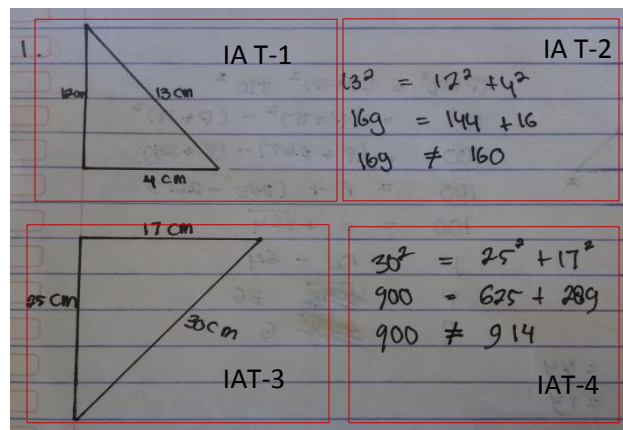 1.
IA T-1
12cm
13 cm
4 cm
IA T-2
13² = 12² + 4²
169 = 144 + 16
169 ≠ 160
17 cm
25 cm
30 cm
IAT-3
30² = 25² + 17²
900 = 625 + 289
900 ≠ 914
IAT-4